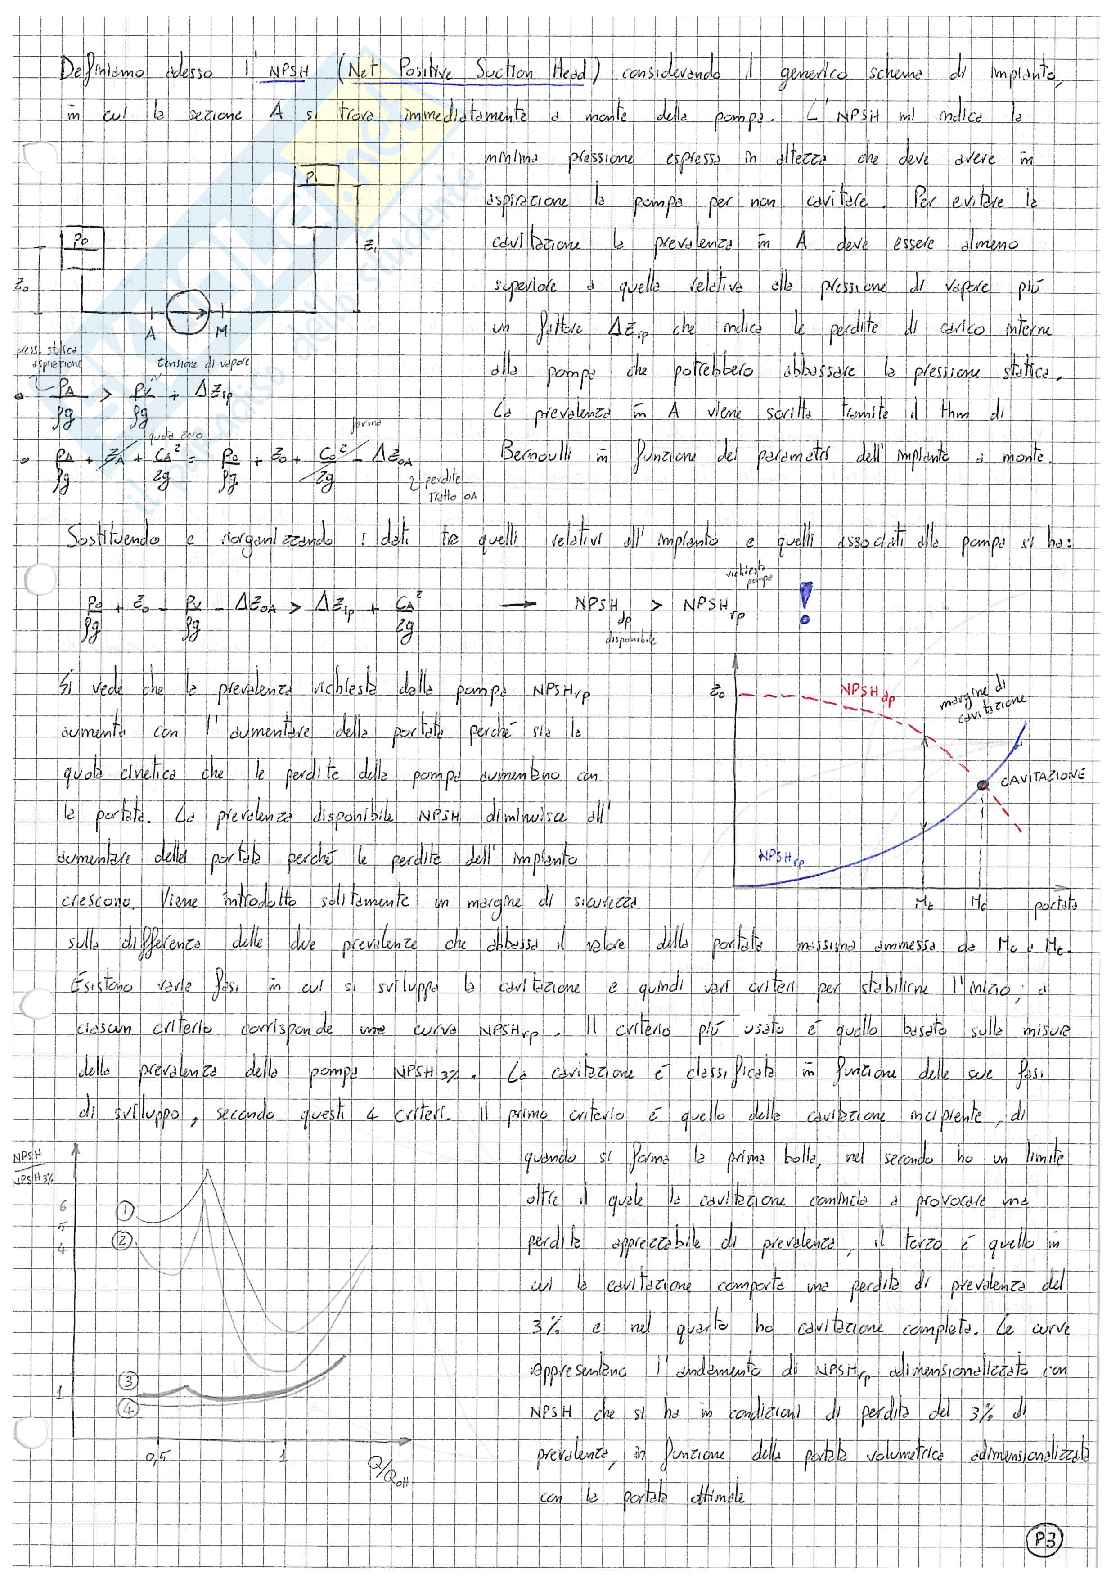 Definiamo adesso l'NPSH (Net Positive Suction Head) considerando il generico schema di impianto,
in cui la sezione A si trova immediatamente a monte della pompa. L'NPSH mi indica la
minima pressione espressa in altezza che deve avere in
aspirazione la pompa per non cavitare. Per evitare la
cavitazione la prevalenza in A deve essere almeno
superiore a quella relativa alla pressione di vapore più
un fattore ΔZip che indica le perdite di carico interne
alla pompa che potrebbero abbassare la pressione statica.
La prevalenza in A viene scritta tramite il thm di
Bernoulli in funzione dei parametri dell'impianto a monte.
P1
P0
Z1
Z0
A M
press. statica aspirazione
tensione di vapore
• PA/ρg > PV/ρg + ΔZip
quota zero
fermo
• PA/ρg + ZA + CA²/2g = P0/ρg + Z0 + C0²/2g - ΔZ0A
perdite tratto 0A
Sostituendo e riorganizzando i dati tra quelli relativi all'impianto e quelli associati alla pompa si ha:
P0/ρg + Z0 - PV/ρg - ΔZ0A > ΔZip + CA²/2g → NPSHdp > NPSHrp !
richiesto pompa
disponibile
Si vede che la prevalenza richiesta dalla pompa NPSHrp
aumenta con l'aumentare della portata perché sia la
quota cinetica che le perdite della pompa aumentano con
la portata. La prevalenza disponibile NPSH diminuisce all'
aumentare della portata perché le perdite dell'impianto
crescono. Viene introdotto solitamente un margine di sicurezza
sulla differenza delle due prevalenze che abbassa il valore della portata massima ammessa da Mc a Mt.
Z0
NPSHdp
margine di cavitazione
CAVITAZIONE
NPSHrp
Mt Mc portata
Esistono varie fasi in cui si sviluppa la cavitazione e quindi vari criteri per stabilirne l'inizio; a
ciascun criterio corrisponde una curva NPSHrp. Il criterio più usato è quello basato sulla misura
della prevalenza della pompa NPSH3%. La cavitazione è classificata in funzione delle sue fasi
di sviluppo, secondo questi 4 criteri. Il primo criterio è quello della cavitazione incipiente, di
quando si forma la prima bolla, nel secondo ho un limite
oltre il quale la cavitazione comincia a provocare una
perdita apprezzabile di prevalenza, il terzo è quello in
cui la cavitazione comporta una perdita di prevalenza del
3% e nel quarto ho cavitazione completa. Le curve
rappresentano l'andamento di NPSHrp adimensionalizzato con
NPSH che si ha in condizioni di perdita del 3% di
prevalenza, in funzione della portata volumetrica adimensionalizzata
con la portata ottimale
NPSH/NPSH3%
6
5
4
1
1
2
3
4
0,5 1 Q/Qott
P3